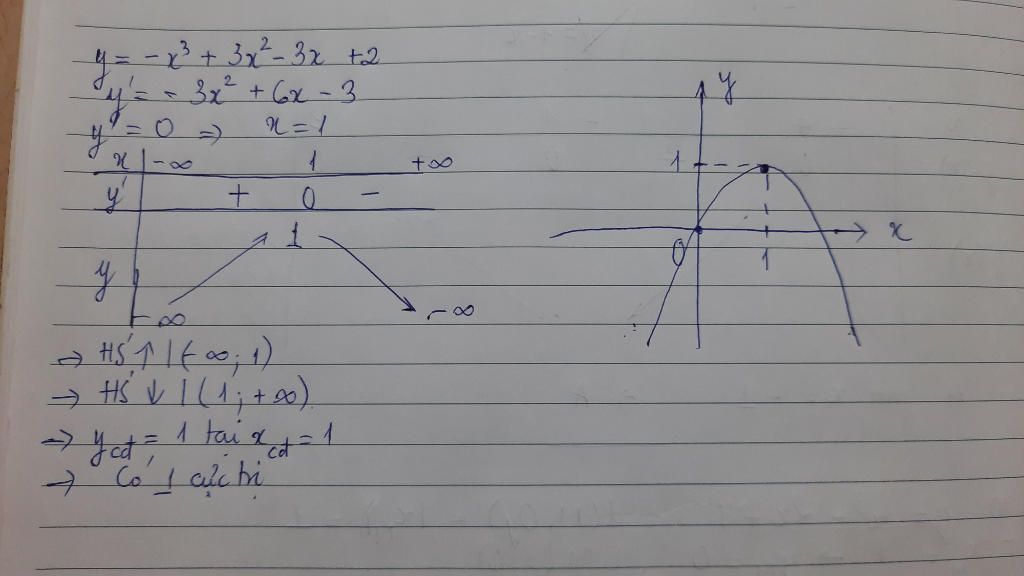 y = -x³ + 3x² - 3x + 2
y' = - 3x² + 6x - 3
y' = 0 => x = 1
x | -∞ 1 +∞
y' + 0 -
y 1
-∞ -∞
→ HS ↑ | (-∞; 1)
→ HS ↓ | (1; +∞)
→ ycđ = 1 tại xcđ = 1
→ Có 1 cực trị
y
1
0 1 x